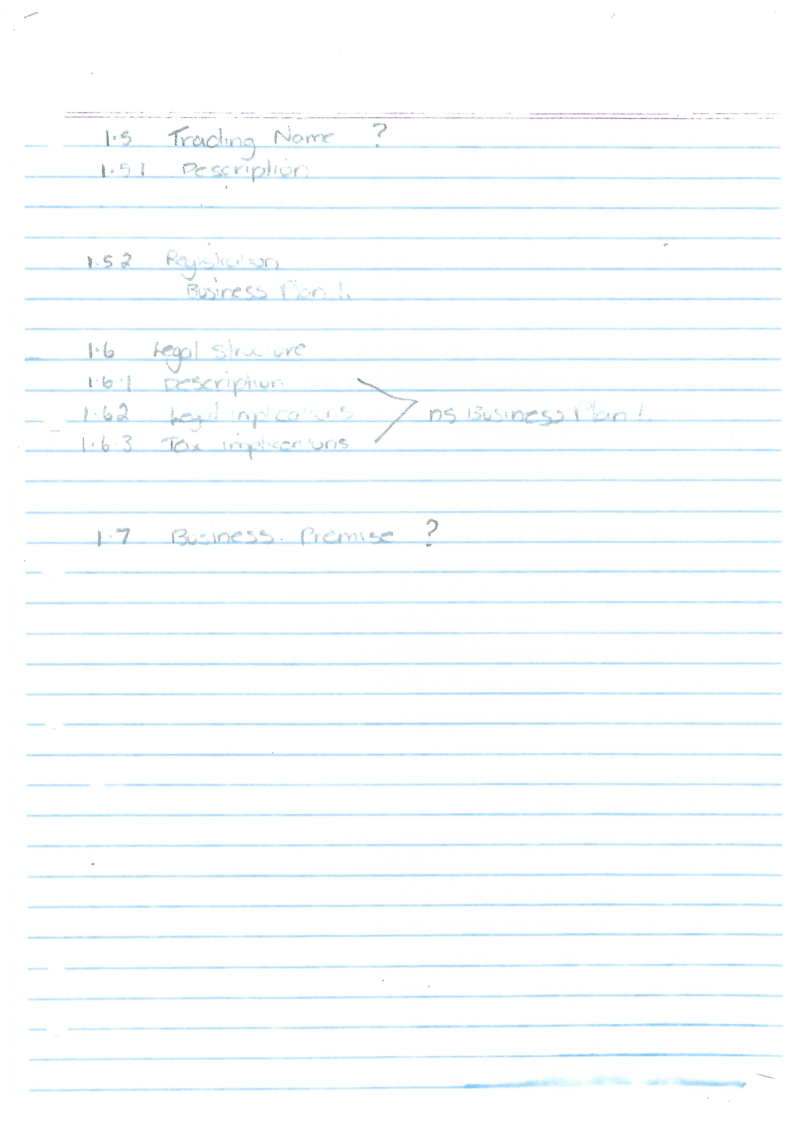 1.5 Trading Name ?
1.5.1 Description
1.5.2 Registration
Business Plan 1.
1.6 Legal structure
1.6.1 Description
1.6.2 Legal implications
ns Business Plan 1.
1.6.3 Tax implications
1.7 Business. Premise ?